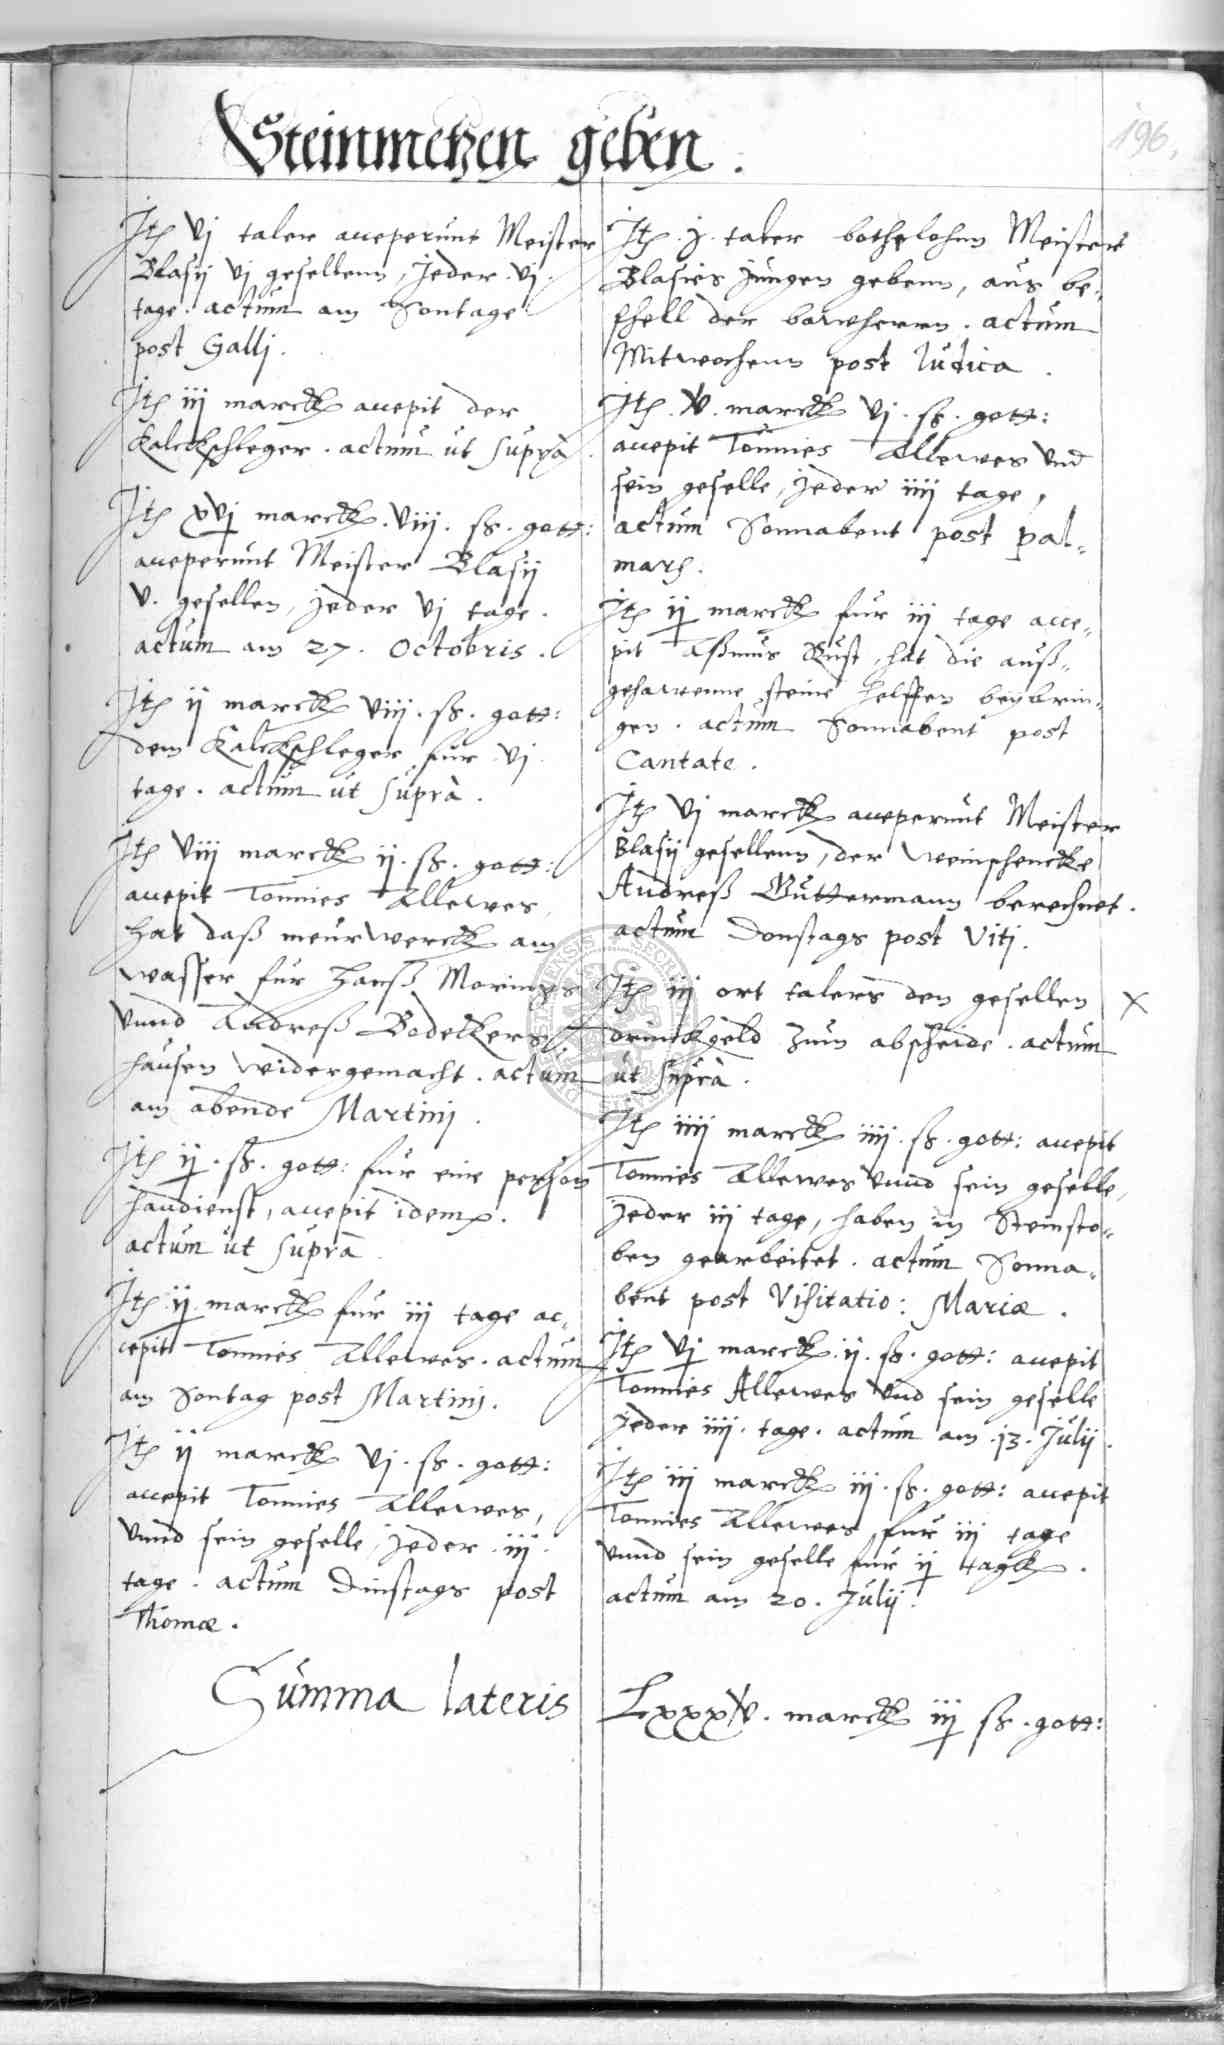 196.
Steinmetzen geben.
Jtē vj taler acceperunt Meister
Blasij vj gesellenn, jeder vj
tage. actum am Sontage
post Gallj.
Jtē iij marck accepit der
Kalckschleger. actum ut suprà.
Jtē xvj marck. viij. ß. gott:
acceperunt Meister Blasij
v. gesellen, jeder vj tage.
actum am 27. Octobris.
Jtē ij marck viij. ß. gott:
dem Kalckschleger fur vj
tage. actum ut suprà.
Jtē viij marck ij. ß. gott:
accepit Tonnies Allewes,
hat daß meurwerck am
wasser fur Hanß Morings
vnnd Andreß Bodeckers
hausen widergemacht. actum
am abende Martinj.
Jtē ij. ß. gott: fur eine person
handienst, accepit idem.
actum ut suprà
Jtē ij marck fur iij tage ac-
cepit Tonnies Allewes. actum
am Sontag post Martinj.
Jtē ij marck vj. ß. gott:
accepit Tonnies Allewes,
vnnd sein geselle, jeder iij
tage. actum Dinstags post
Thomæ.
Summa lateris
Jtē. j. taler bothelohnn Meister
Blasies jungen gebenn, aus be-
fhell der bawherrn. actum
Mitwochenn post Iudica.
Jtē. v. marck vj. ß. gott:
accepit Tonnies Allewes vnd
sein geselle, jeder iiij tage,
actum Sonnabent post pal-
marū.
Jtē ij marck fur iij tage acce-
pit Aßmus Rust, hat die auß-
gehawenne steine helffen beybrin-
gen. actum Sonnabent post
Cantate.
Jtē vj marck acceperunt Meister
Blasij gesellenn, der weinschencke
Andreß Guttermann berechnet.
actum Donstags post Vitj.
Jtē iij ort talers den gesellen
drinckgeld zum abscheide. actum
ut suprà.
Jtē iiij marck iiij. ß. gott: accepit
Tonnies Allewes vnnd sein geselle,
jeder iij tage, haben in Steinsto-
ben gearbeitet. actum Sonna-
bent post Visitatio: Mariæ.
Jtē vj marck ij. ß. gott: accepit
Tonnies Allewes vnd sein geselle
jeder iiij. tage. actum am 13. Julij.
Jtē iij marck iij. ß. gott: accepit
Tonnies Allewes fur iij tage
vnnd sein geselle fur ij tage.
actum am 20. Julij.
Lxxxv. marck iij ß. gott: